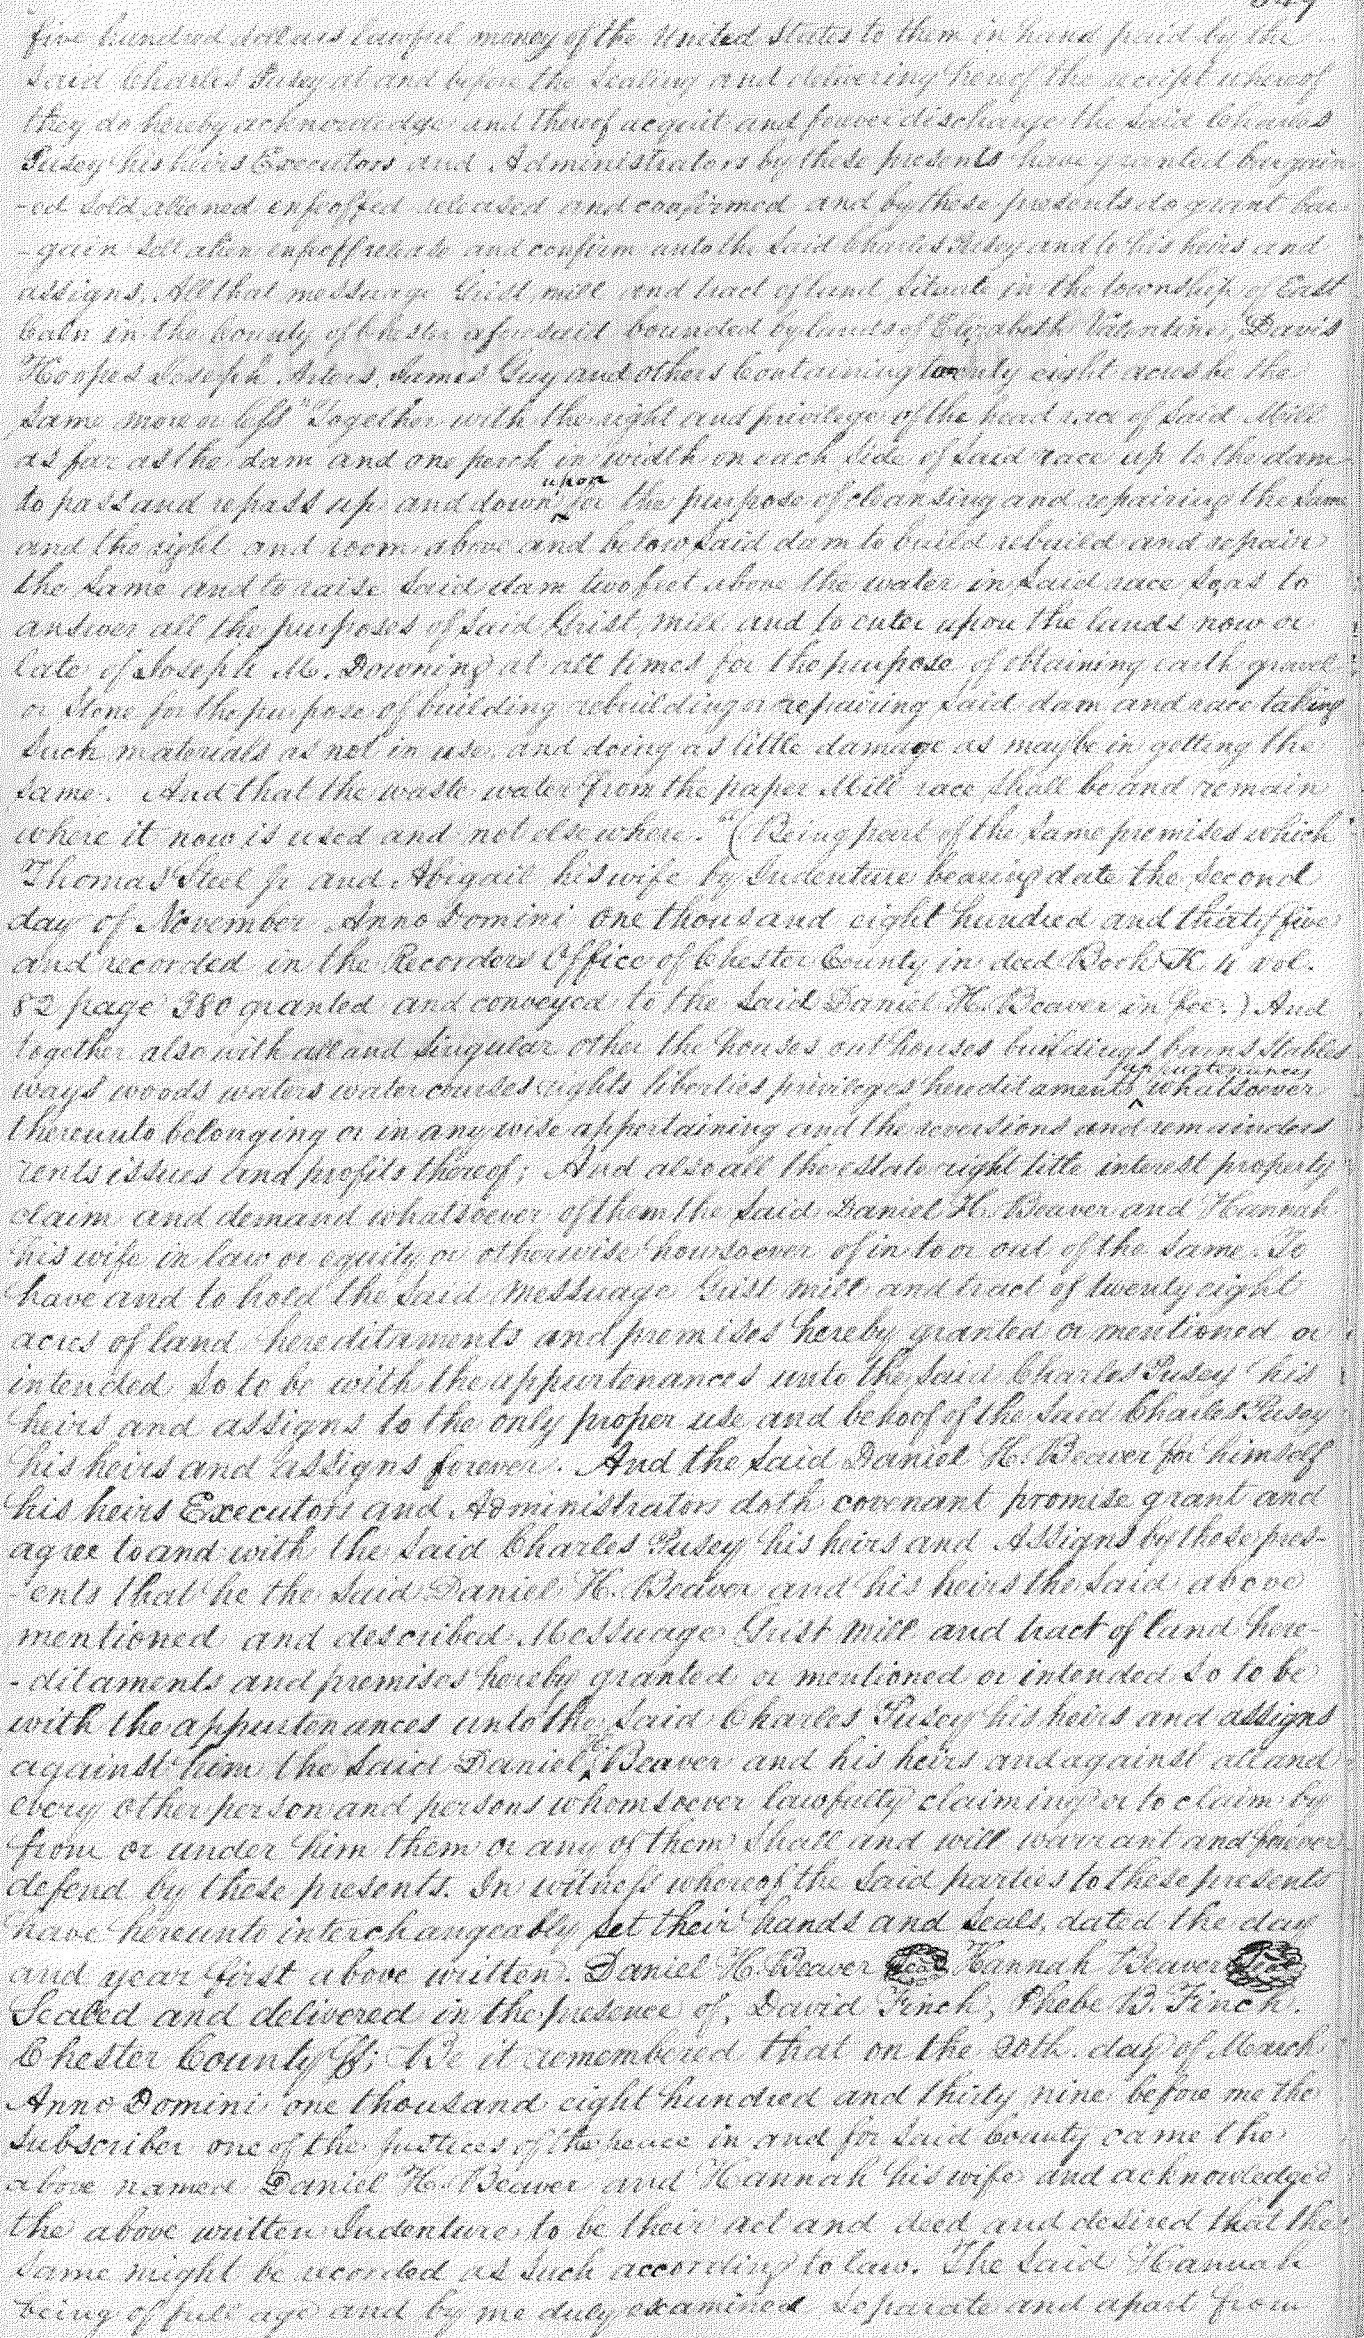 five hundred dollars lawful money of the United States to them in hand paid by the
said Charles Pusey at and before the sealing and delivering hereof the receipt whereof
they do hereby acknowledge and thereof acquit and forever discharge the said Charles
Pusey his heirs Executors and Administrators by these presents have granted bargain
-ed sold aliened enfeoffed released and confirmed and by these presents do grant bar
-gain sell alien enfeoff release and confirm unto the said Charles Pusey and to his heirs and
assigns, All that messuage Grist mill and tract of land situate in the township of East
Caln in the County of Chester aforesaid bounded by lands of Elizabeth Valentine, Davis
Hoopes Joseph James Guy and others Containing twenty eight acres be the
same more or less "Together with the right and privilege of the head race of said Mill
as far as the dam and one perch in width on each side of said race up to the dam
to pass and repass up and down upon for the purpose of cleansing and repairing the same
and the right and room above and below said dam to build rebuild and repair
the same and to raise said dam two feet above the water in said race so as to
answer all the purposes of said Grist mill and to enter upon the lands now or
late of Joseph M. Downing at all times for the purpose of obtaining earth gravel
or Stone for the purpose of building rebuilding or repairing said dam and race taking
such materials as not in use, and doing as little damage as may be in getting the
same. And that the waste water from the paper Mill race shall be and remain
where it now is used and not elsewhere." (Being part of the same premises which
Thomas Steel Jr and Abigail his wife by Indenture bearing date the second
day of November Anno Domini one thousand eight hundred and thirty five
and recorded in the Recorders Office of Chester County in deed Book K 4 vol.
82 page 380 granted and conveyed to the said Daniel H. Beaver in fee.) And
together also with all and singular other the houses out houses buildings barns stables
ways woods waters water courses rights liberties privileges hereditaments appurtenances whatsoever
thereunto belonging or in any wise appertaining and the reversions and remainders
rents issues and profits thereof; And also all the estate right title interest property
claim and demand whatsoever of them the said Daniel H. Beaver and Hannah
his wife in law or equity or otherwise howsoever of in to or out of the same. To
have and to hold the said messuage Grist mill and tract of twenty eight
acres of land hereditaments and premises hereby granted or mentioned or
intended so to be with the appurtenances unto the said Charles Pusey his
heirs and assigns to the only proper use and behoof of the said Charles Pusey
his heirs and assigns forever. And the said Daniel H. Beaver for himself
his heirs Executors and Administrators doth covenant promise grant and
agree to and with the said Charles Pusey his heirs and Assigns by these pres-
-ents that he the said Daniel H. Beaver and his heirs the said above
mentioned and described Messuage Grist Mill and tract of land here-
-ditaments and premises hereby granted or mentioned or intended so to be
with the appurtenances unto the said Charles Pusey his heirs and assigns
against him the said Daniel H. Beaver and his heirs and against all and
every other person and persons whomsoever lawfully claiming or to claim by
from or under him them or any of them Shall and will warrant and forever
defend by these presents. In witness whereof the said parties to these presents
have hereunto interchangeably set their hands and seals, dated the day
and year first above written. Daniel H. Beaver Seal Hannah Beaver Seal
Sealed and delivered in the presence of, David Finch, Phebe B. Finch.
Chester County ss; Be it remembered that on the 20th day of March
Anno Domini one thousand eight hundred and thirty nine before me the
subscriber one of the justices of the peace in and for said County came the
above named Daniel H. Beaver and Hannah his wife and acknowledged
the above written Indenture to be their act and deed and desired that the
same might be recorded as such according to law. The said Hannah
being of full age and by me duly examined separate and apart from